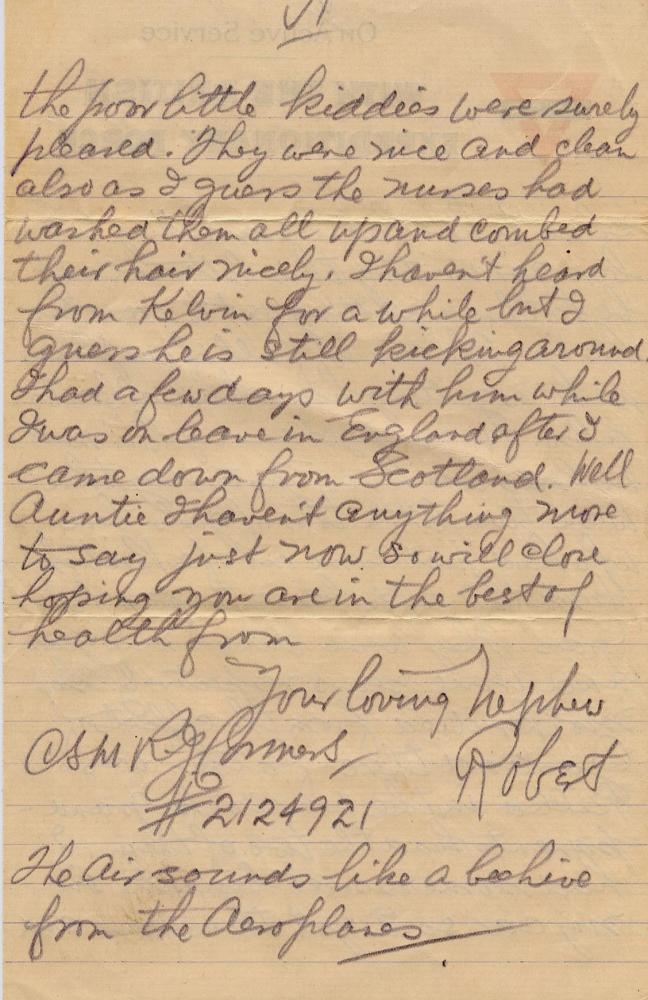 VI
the poor little kiddies were surely
pleased. They were nice and clean
also as I guess the nurses had
washed them all up and combed
their hair nicely. I haven't heard
from Kelvin for a while but I
guess he is still kicking around.
I had a few days with him while
I was on leave in England after I
came down from Scotland. Well
Auntie I haven't anything more
to say just now so will close
hoping you are in the best of
health from
Your loving Nephew
CSM R J Conners Robert
#2124921
The Air sounds like a beehive
from the Aeroplanes